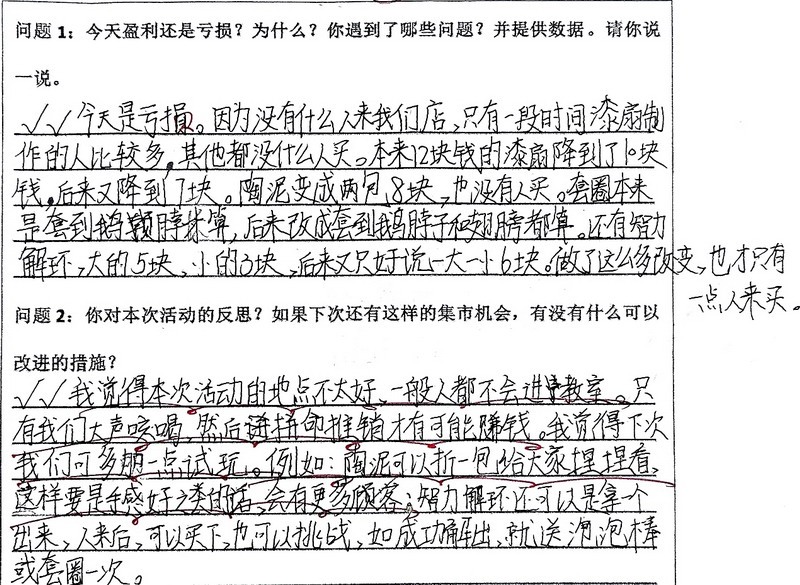 问题 1：今天盈利还是亏损？为什么？你遇到了哪些问题？并提供数据。请你说
一说。
√√今天是亏损。因为没有什么人来我们店，只有一段时间漆扇制
作的人比较多，其他都没什么人买。本来12块钱的漆扇降到了10块
钱。后来又降到7块。陶泥变成两包8块，也没有人买。套圈本来
是套到鹅颈脖来算，后来改成套到鹅脖子和翅膀都算。还有智力
解环，大的5块，小的3块，后来又只好说一大一小6块。做了这么多改变，也才只有
一点人来买。
问题 2：你对本次活动的反思？如果下次还有这样的集市机会，有没有什么可以
改进的措施？
√√我觉得本次活动的地点不太好，一般人都不会进教室。只
有我们大声吆喝，然后拼命推销才有可能赚钱。我觉得下次
我们可多一点试玩。例如：陶泥可以折一包给大家捏捏看，
这样要是手感好之类的话，会有更多顾客；智力解环还可以是拿一个
出来，人来后，可以买下，也可以挑战，如成功解出，就送泡泡棒
或套圈一次。